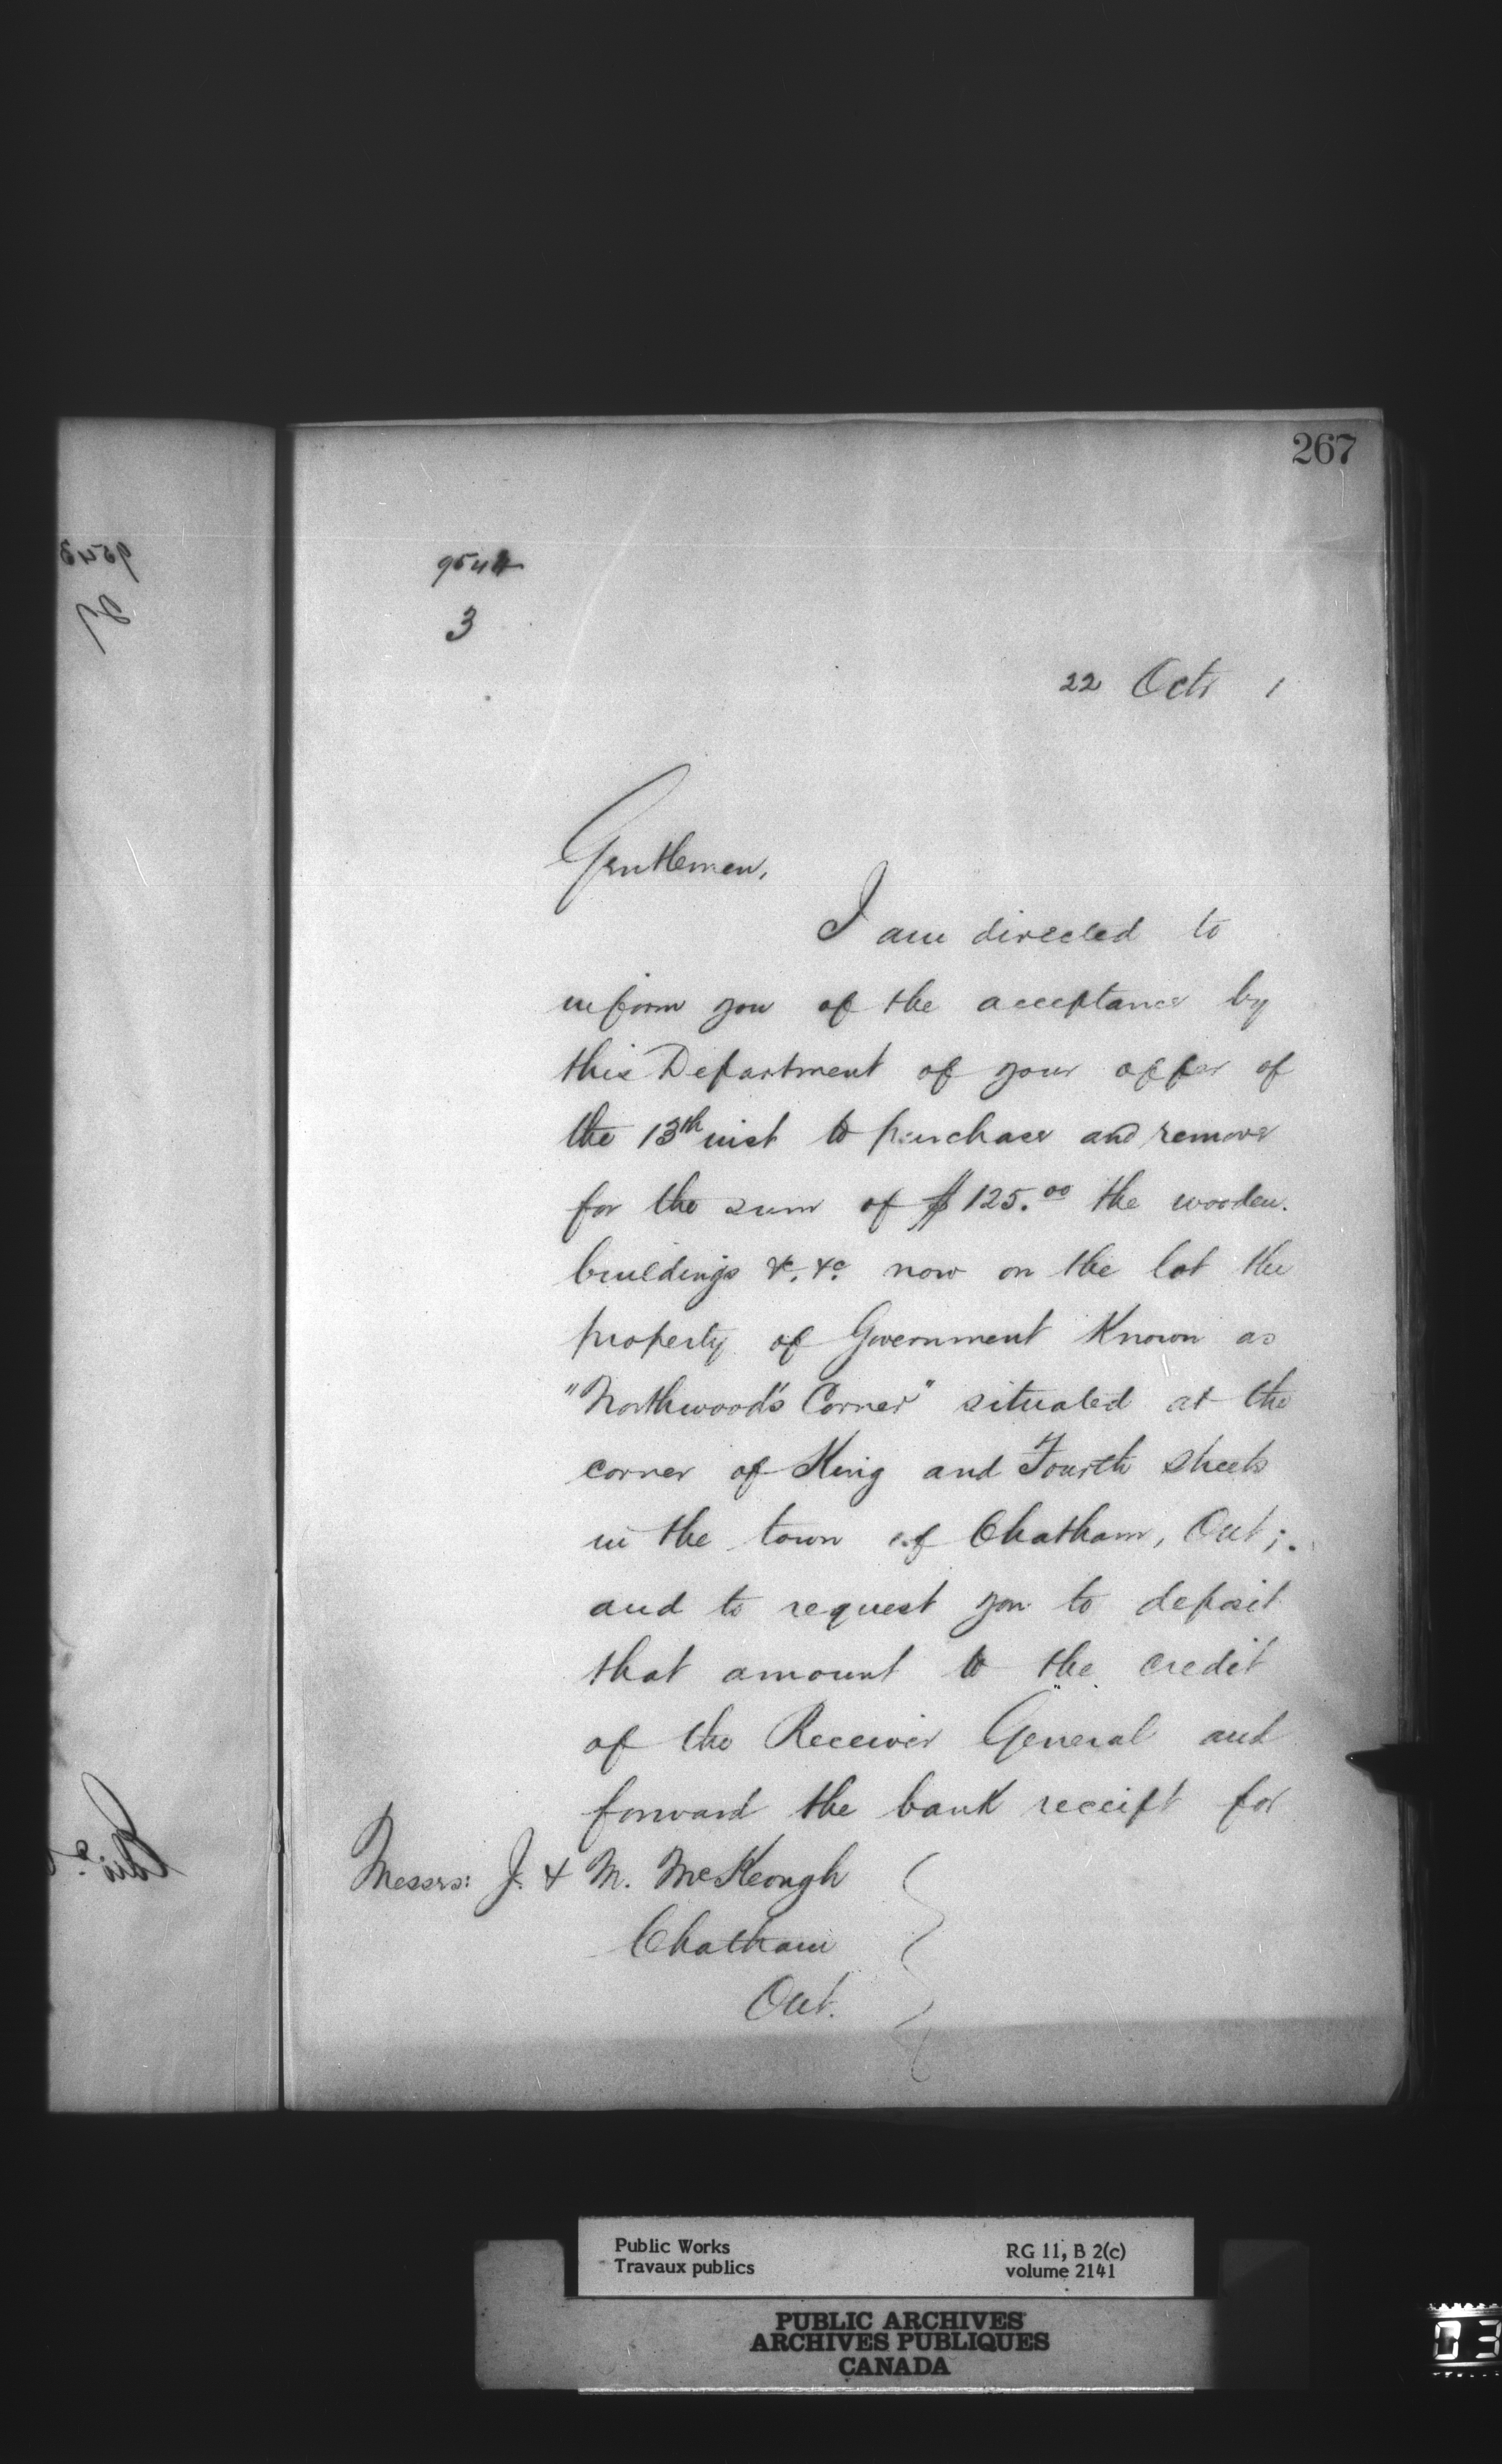 267
9544
3
22 Octr 1
Gentlemen,
I am directed to
inform you of the acceptance by
this Department of your offer of
the 13th inst to purchase and remove
for the sum of $125.00 the wooden
buildings &c. &c. now on the lot the
property of Government Known as
"Northwood's Corner" situated at the
corner of King and Fourth streets
in the town of Chatham, Ont;.
and to request you to deposit
that amount to the credit
of the Receiver General and
forward the bank receipt for
Messrs: J. & M. McKeough
Chatham
Ont.
Public Works
Travaux publics
RG 11, B 2(c)
volume 2141
PUBLIC ARCHIVES
ARCHIVES PUBLIQUES
CANADA
03